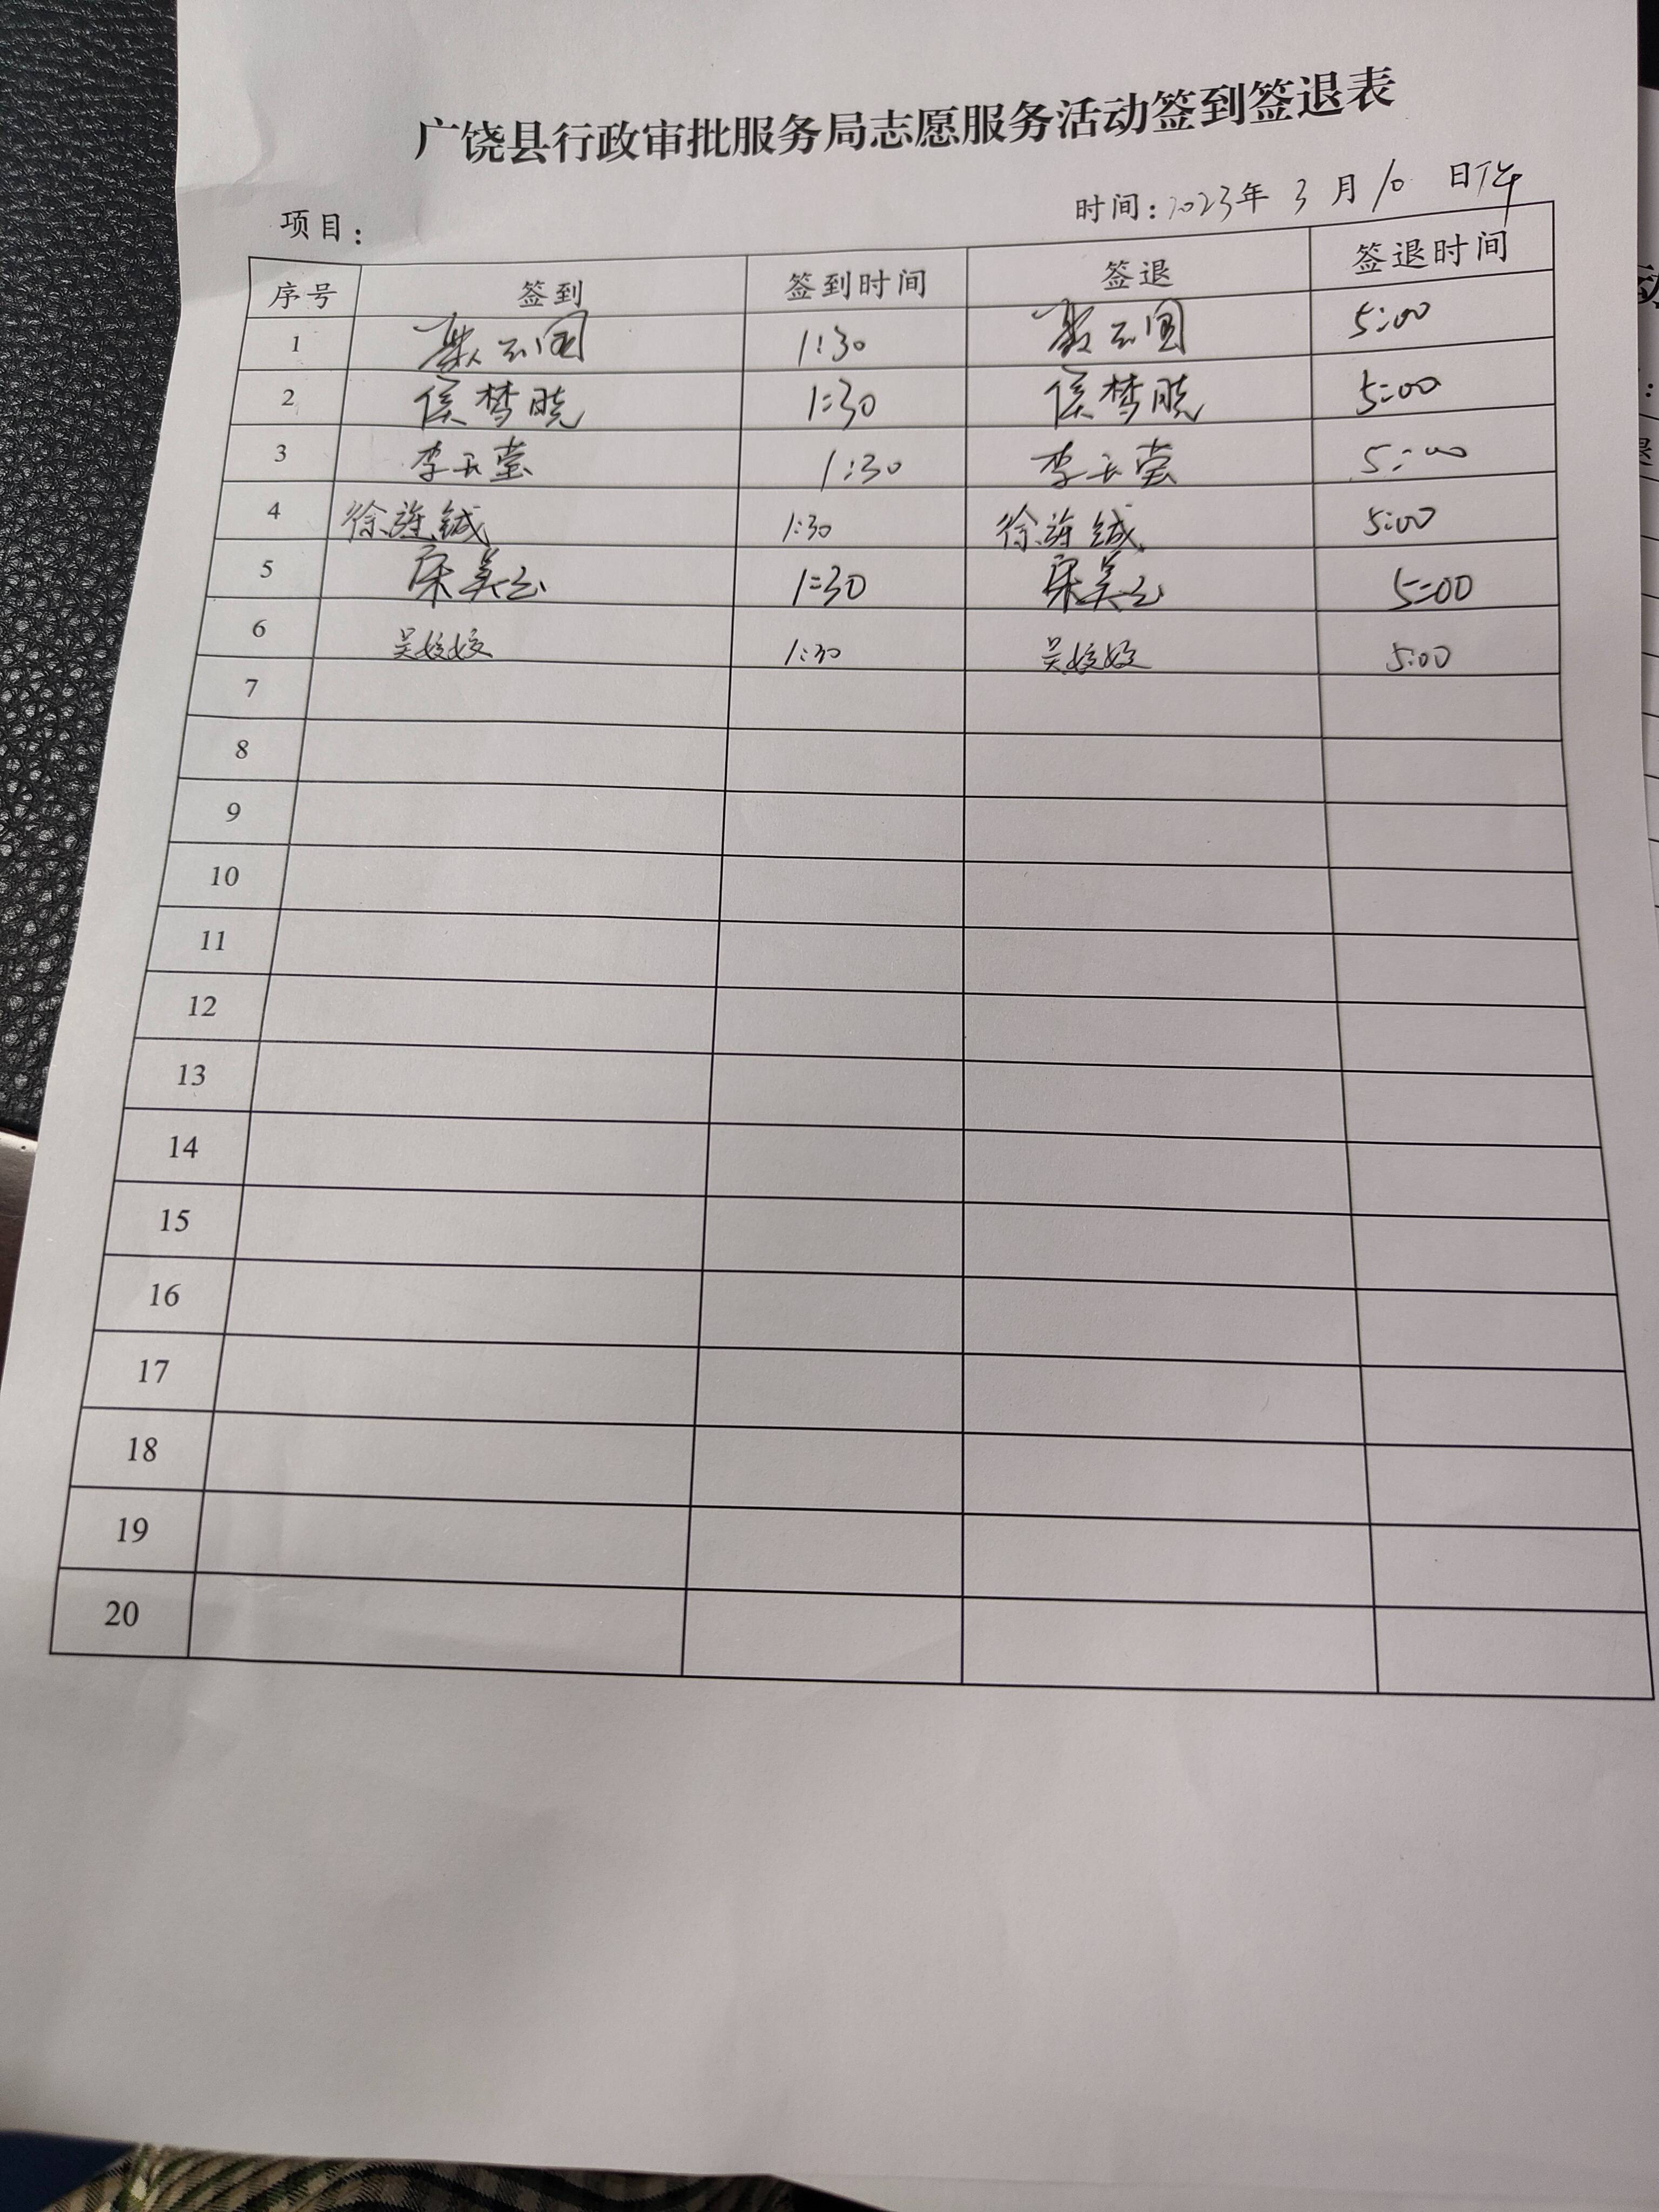 广饶县行政审批服务局志愿服务活动签到签退表
项目： 时间：2023年 3 月 10 日下午
序号 签到 签到时间 签退 签退时间
1 1:30 5:00
2 侯梦晓 1:30 侯梦晓 5:00
3 李玉莹 1:30 李玉莹 5:00
4 徐 1:30 徐 5:00
5 宋美云 1:30 宋美云 5:00
6 吴姣姣 1:30 吴姣姣 5:00
7
8
9
10
11
12
13
14
15
16
17
18
19
20